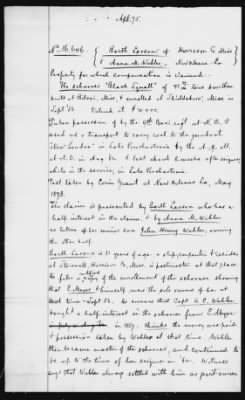 Apl. 75.
No. 16,646 { Barth Lorson of Harrison Co Miss
{ Anna M. Wohler, New Orleans La
Property for which compensation is claimed:
The schooner "Black Squall" of tons burthen
built at Biloxi, Miss, & enrolled at Shieldsboro, Miss in
Sept '56 Value at $ 4000.
Taken possession of by the 6th Conn regt at N. O. &
used as a transport to carry coal to the gunboat
"New London" in Lake Pontchartrain by the A. Q. M.
at N. O. in & lost about 2 weeks after seizure,
while in the service, in Lake Pontchartrain.
Test taken by Comr Grant at New Orleans La, May
1878.
The claim is presented by Barth Lorson who has a
half interest in the claim & by Anna M. Wohler
as tutrix of her minor son John Henry Wohler, owning
the other half.
Barth Lorson is 51 years of age, a ship carpenter & resides
at Stonewall, Harrison Co, Miss. is postmaster at that place.
He files a copy of the enrollment of the schooner showing
that E. Meyer & himself were the sole owners of her at
that time - Sept 56. He swears that Capt H. C. Wohler
bought a half interest in the schooner from E. Meyer
in 1859; thinks the money was paid
& possession taken by Wohler at that time. Wohler
then became master of the schooner, and continued to
be up to the time of her seizure in Witness
says that Wohler always settled with him as part owner.